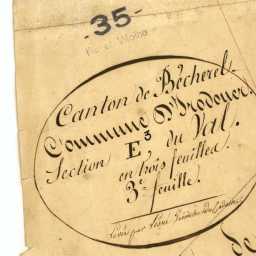 -35-
Canton de Bécherel.
Commune d'Irodouer.
Section E³ du Val.
en trois feuilles.
3ᵉ feuille.
Levée par
de